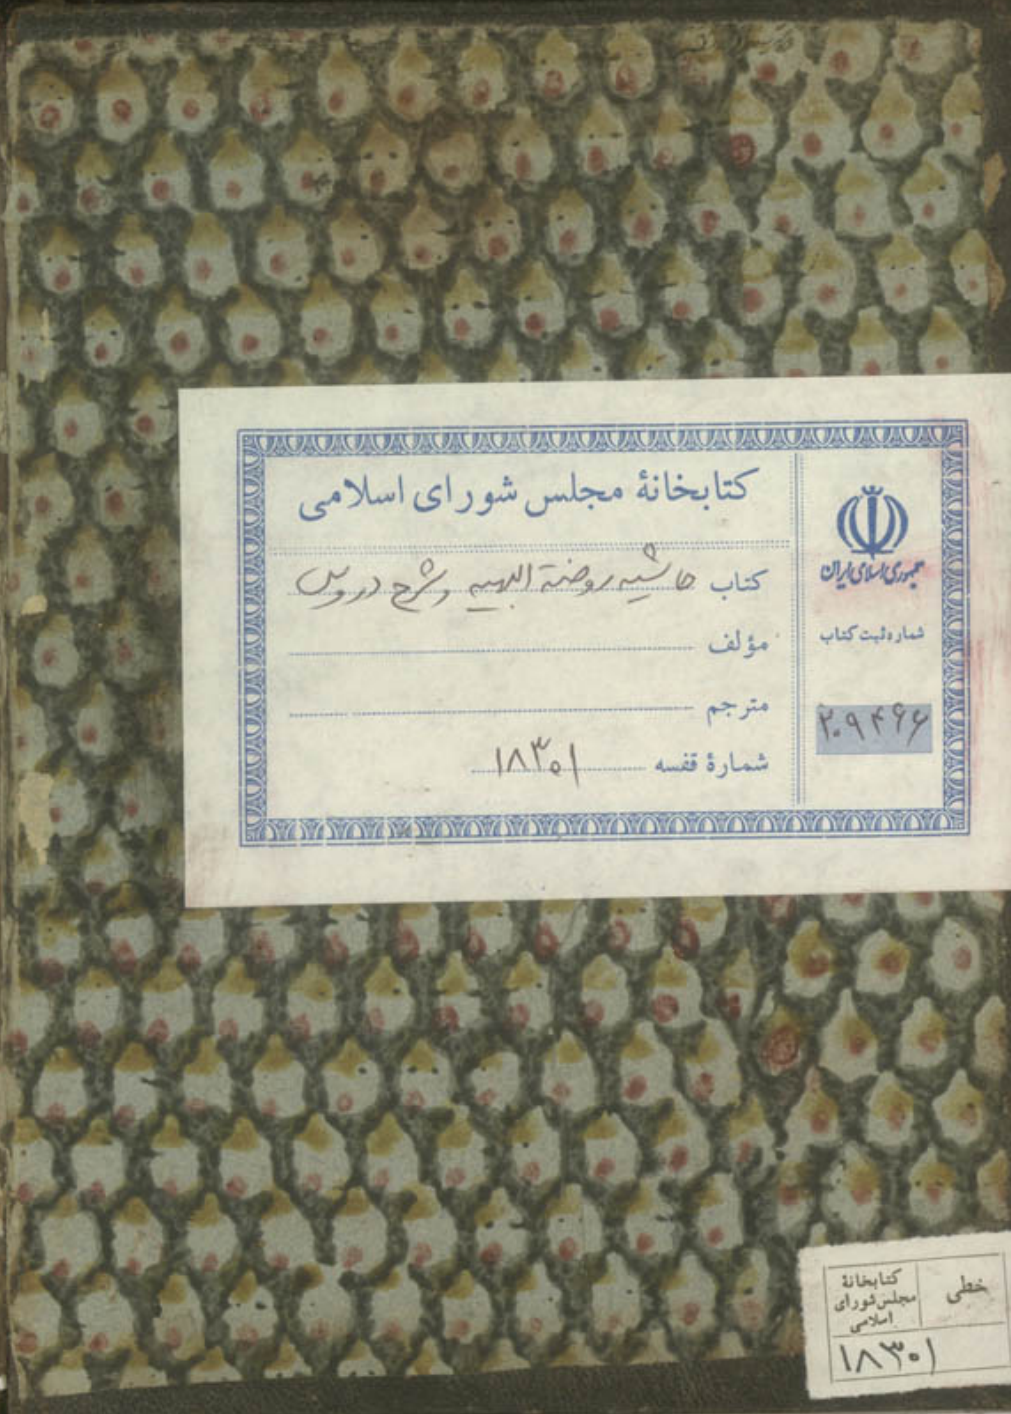 کتابخانهٔ مجلس شورای اسلامی
کتاب حاشیه روضة البهیه و شرح دروس
مؤلف
مترجم
شمارهٔ قفسه ۱۸۳۰۱
جمهوری اسلامی ایران
شماره ثبت کتاب
۲۰۹۴۶۶
خطی
کتابخانهٔ
مجلس شورای
اسلامی
۱۸۳۰۱